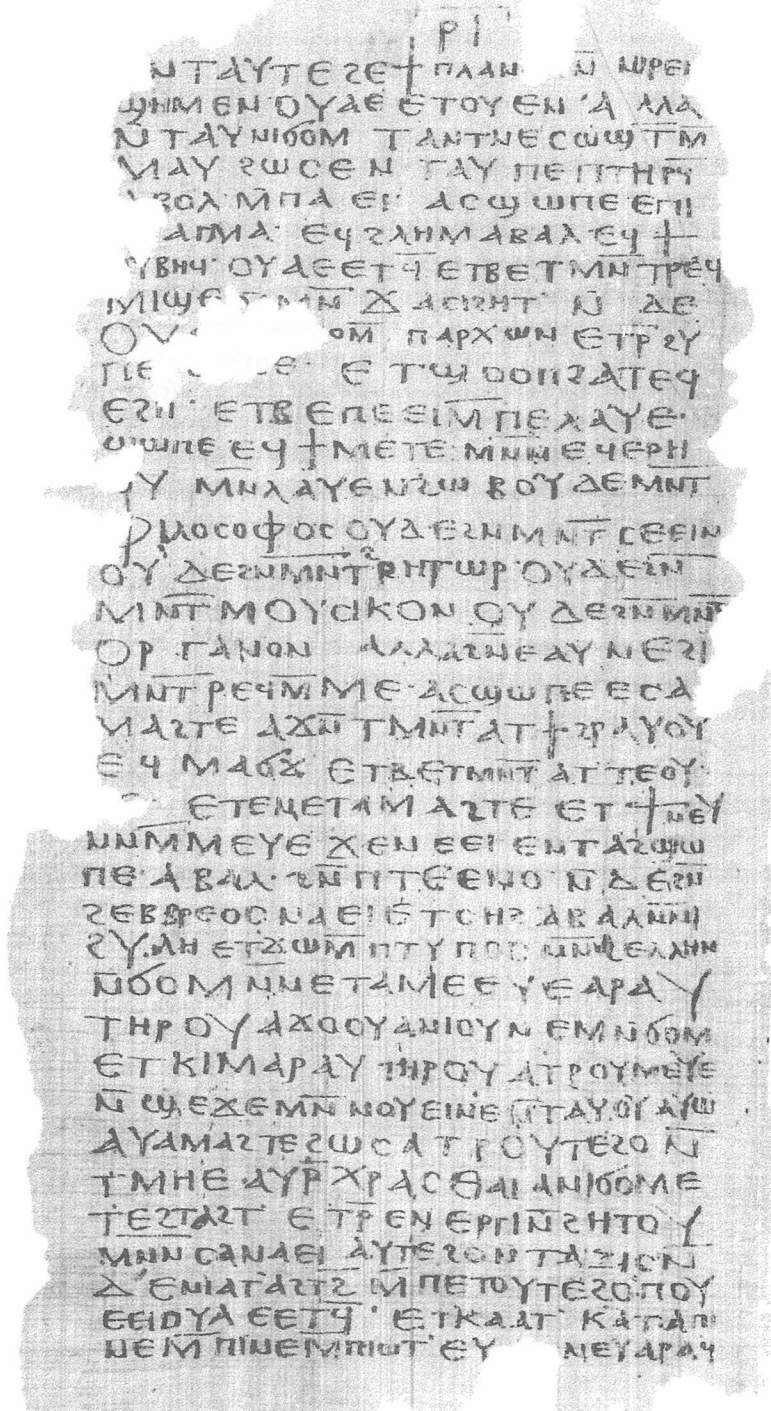 ⲣⲓ
ⲛⲧⲁⲩⲧⲉϩⲉ ϯⲡⲗⲁⲛ ⲛ̄ ⲛϣⲣⲉⲓ
ϣⲏⲙ ⲉⲛ ⲟⲩⲁⲉⲉⲧⲟⲩ ⲉⲛ ⲁⲗⲗⲁ
ⲛ̄ⲧⲁⲩ ⲛⲓϭⲟⲙ ⲧⲁⲛⲧⲛ ⲉⲥⲱϣⲧ̄ⲙ̄
ⲙⲁⲩ ϩⲱⲥ ⲉⲛⲧⲁⲩ ⲡⲉ ⲡⲧⲏⲣϥ̄
ⲃⲟⲗ ⲙ̄ⲡⲁⲉⲓ· ⲁⲥϣⲱⲡⲉ ⲉⲡⲓ
ⲁⲅⲙⲁ· ⲉϥϩⲗⲏⲙ ⲁⲃⲁⲗ ⲉϥϯ
ⲩⲃⲏϥ· ⲟⲩⲁⲉⲉⲧϥ̄ ⲉⲧⲃⲉ ⲧⲙⲛ̄ⲧⲣⲉϥ
ⲙⲓϣⲉ ⲙⲛ̄ ϫⲁⲥⲓϩⲏⲧ· ⲛ̄ⲇⲉ
ⲟⲩ ⲟⲙ̄ ⲡⲁⲣⲭⲱⲛ ⲉⲧⲣ̄ϩⲩ
ⲡⲉ ⲉ· ⲉⲧϣⲟⲟⲡ ϩⲁⲧⲉϥ
ⲉϩⲏ· ⲉⲧⲃⲉ ⲡⲉⲉⲓ ⲙ̄ⲡⲉⲗⲁⲩⲉ·
ϣⲱⲡⲉ ⲉϥϯⲙⲉⲧⲉ ⲙⲛ̄ ⲛⲉϥⲉⲣⲏ
ⲩ ⲙⲛ̄ⲗⲁⲩⲉ ⲛ̄ϩⲱⲃ ⲟⲩⲇⲉ ⲙⲛ̄ⲧ
ⲫⲓⲗⲟⲥⲟⲫⲟⲥ ⲟⲩⲇⲉ ϩⲛ ⲙⲛ̄ⲧⲥⲉⲉⲓⲛ
ⲟⲩⲇⲉ ϩⲛ̄ ⲙⲛ̄ⲧϩⲣⲏⲧⲱⲣ ⲟⲩⲇⲉ ϩⲛ̄
ⲙⲛ̄ⲧⲙⲟⲩⲥⲓⲕⲟⲛ ⲟⲩⲇⲉ ϩⲛ̄ ⲙⲛ̄ⲧ
ⲟⲣⲅⲁⲛⲟⲛ ⲁⲗⲗⲁ ϩⲛ̄ⲉⲁⲩ ⲛⲉ ϩⲓ
ⲙⲛ̄ⲧⲣⲉϥⲙ̄ⲙⲉ· ⲁⲥϣⲱⲡⲉ ⲉⲥⲁ
ⲙⲁϩⲧⲉ ⲁϫⲛ̄ ⲧⲙⲛ̄ⲧⲁⲧϯϩⲣⲁⲩⲟⲩ
ⲉϥⲙⲁϭϫ ⲉⲧⲃⲉ ⲧⲙⲛ̄ⲧⲁⲧⲧⲉⲟⲩ·
ⲉⲧⲉⲛⲉⲧⲁⲙⲁϩⲧⲉ ⲉⲧϯ ⲛⲉⲩ
ⲛⲛⲙ̄ⲙⲉⲩⲉ ϫⲉ ⲛⲉⲉⲓ ⲉⲛⲧⲁϩϣⲱ
ⲡⲉ· ⲁⲃⲁⲗ· ϩⲛ̄ ⲡⲧⲉⲉⲛⲟ ⲛ̄ⲇⲉ ϩⲛ̄
ϩⲉⲃⲣⲉⲟⲥ ⲛⲁⲉⲓ ⲉⲧⲥⲏϩ ⲁⲃⲁⲗ ⲛ̄ⲛⲓ
ϩⲩⲗⲏ ⲉⲧϫⲱ ⲙ̄ⲡⲧⲩⲡⲟⲥ ⲛⲛϩⲉⲗⲗⲏⲛ
ⲛ̄ϭⲟⲙ ⲛ̄ⲛⲉⲧⲁⲙⲉⲉⲩⲉ ⲁⲣⲁⲩ
ⲧⲏⲣⲟⲩ ⲁϫⲟⲟⲩ ⲁⲛⲓⲟⲩⲛⲉⲙ ⲛ̄ϭⲟⲙ
ⲉⲧⲕⲓⲙ ⲁⲣⲁⲩ ⲧⲏⲣⲟⲩ ⲁⲧⲣⲟⲩⲙⲉⲩⲉ
ⲛ̄ϣⲉϫⲉ ⲙⲛ̄ⲛⲟⲩⲉⲓⲛⲉ ⲛ̄ⲧⲁⲩⲟⲩ ⲁⲩⲱ
ⲁⲩⲁⲙⲁϩⲧⲉ ϩⲱⲥ ⲁⲧⲣⲟⲩⲧⲉϩⲟ ⲛ̄
ⲧⲙⲏⲉ ⲁⲩⲣ̄ ⲭⲣⲁⲥⲑⲁⲓ ⲁⲛⲓϭⲟⲙ ⲉ
ⲧⲉϩⲧⲁϩⲧ̄ ⲉⲧⲣ̄ⲉⲛⲉⲣⲅⲓ ⲛ̄ϩⲏⲧⲟⲩ
ⲙⲛⲛⲥⲁ ⲛⲁⲉⲓ ⲁⲩⲧⲉϩⲟ ⲛⲧⲁⲝⲓⲥ ⲛ̄
ⲇⲉ ⲛⲓⲁⲧⲁϩⲧϩ̄ ⲙ̄ⲡⲉⲧⲟⲩⲧⲉϩⲟ ⲡⲟⲩ
ⲉⲉⲓ ⲟⲩⲁⲉⲉⲧϥ̄· ⲉⲧⲕⲁⲁⲧ· ⲕⲁⲧⲁ ⲡⲓ
ⲛⲉ ⲙ̄ⲡⲓⲛⲉ ⲙ̄ⲡⲓⲱⲧ· ⲉⲩ ⲛⲉⲩ ⲁⲣⲁϥ